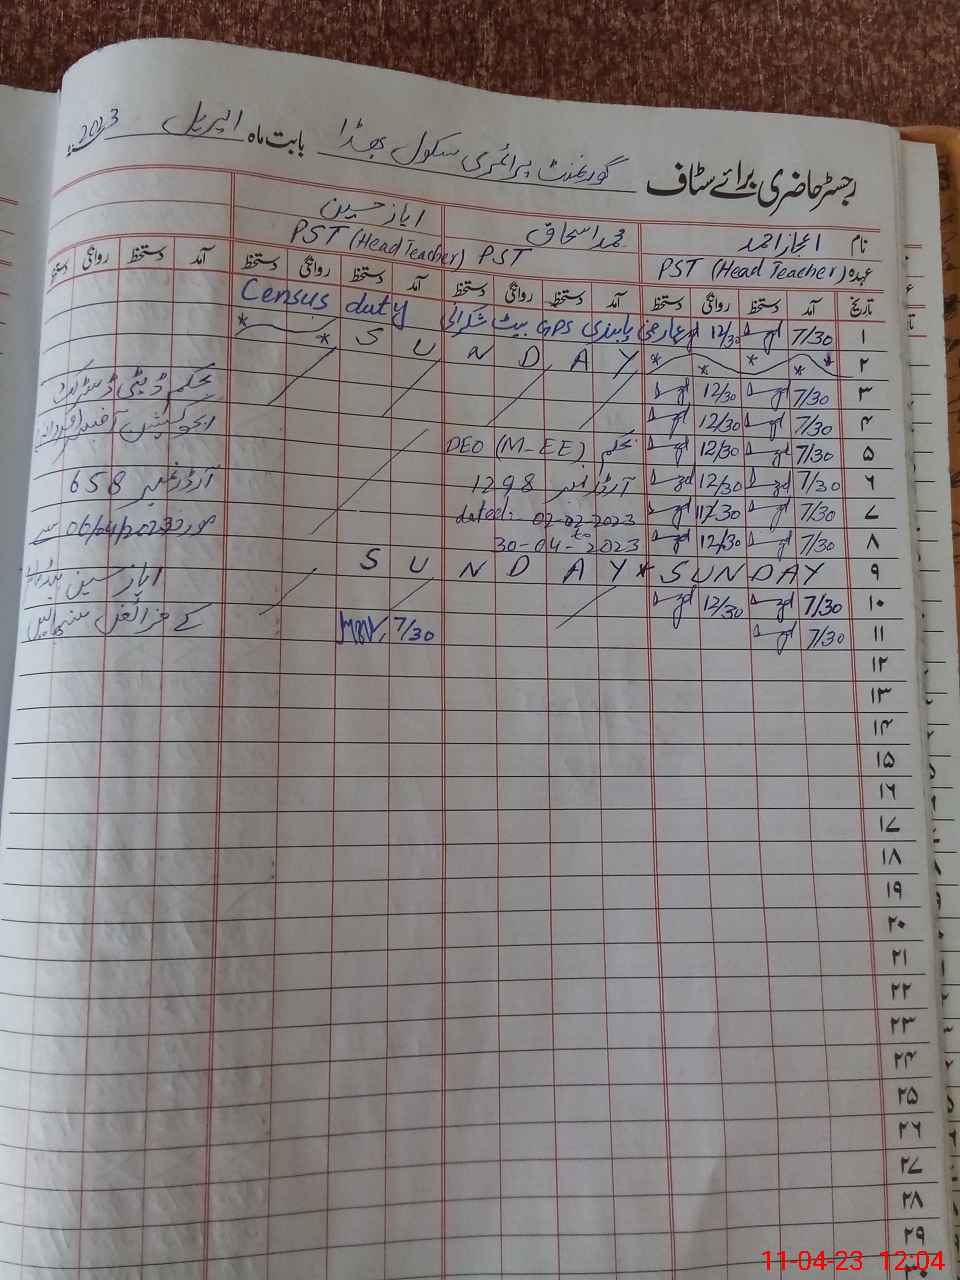 رجسٹر حاضری برائے سٹاف گورنمنٹ پرائمری سکول بھڈا بابت ماہ اپریل 2023
نام اعجاز احمد محمد اسحاق ایاز حسین
عہدہ PST (Head Teacher) PST PST (Head Teacher)
تاریخ آمد دستخط روانگی دستخط آمد دستخط روانگی دستخط آمد دستخط روانگی دستخط آمد دستخط روانگی دستخط
۱ 7/30 12/30 عارضی پابندی GPS بیٹ شکرانی Census duty
۲ * * * * S U N D A Y * *
۳ 7/30 12/30 بحکم ڈپٹی ڈسٹرکٹ
۴ 7/30 12/30 ایجوکیشن آفیسر
۵ 7/30 12/30 بحکم DEO (M-EE)
۶ 7/30 12/30 آرڈر نمبر 1298 آرڈر نمبر 658
۷ 7/30 12/30 dated:- 02-02-2023 مورخہ 06/04/2023 سے
۸ 7/30 12/30 to 30-04-2023
۹ SUNDAY * S U N D A Y ایاز حسین
۱۰ 7/30 12/30 کے فرائض سنبھالیں
۱۱ 7/30 7/30
۱۲
۱۳
۱۴
۱۵
۱۶
۱۷
۱۸
۱۹
۲۰
۲۱
۲۲
۲۳
۲۴
۲۵
۲۶
۲۷
۲۸
۲۹
۳۰
11-04-23 12:04